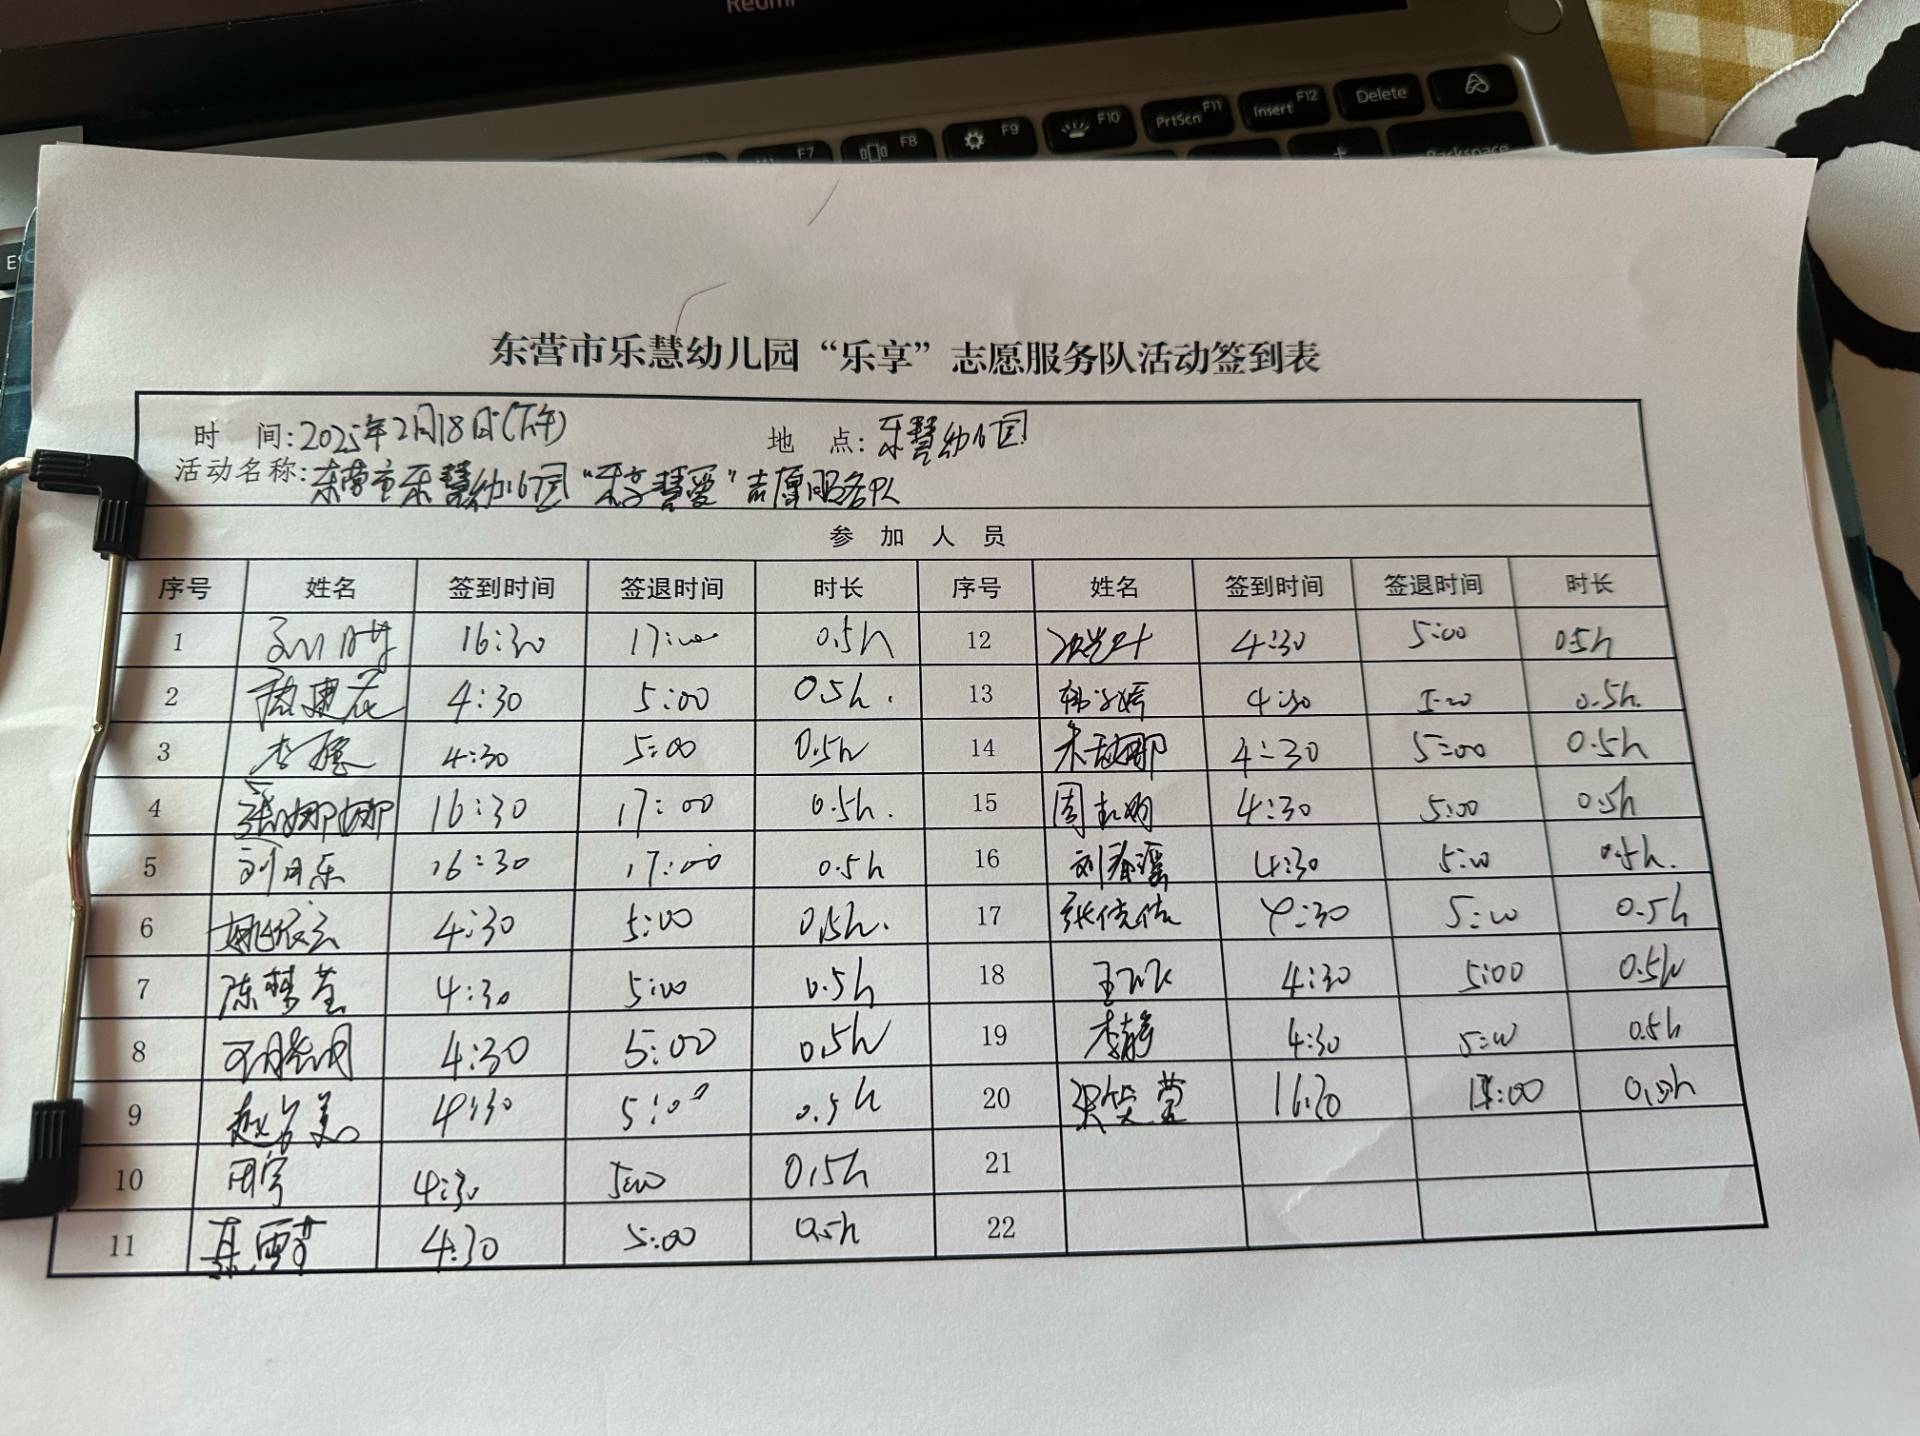 Redmi
F7 F8 F9 F10 PrtScn F11 Insert F12 Delete
Backspace
东营市乐慧幼儿园“乐享”志愿服务队活动签到表
时 间:2025年2月18日(下午) 地 点:乐慧幼儿园
活动名称:东营市乐慧幼儿园“乐享慧爱”志愿服务队
参 加 人 员
序号 姓名 签到时间 签退时间 时长 序号 姓名 签到时间 签退时间 时长
1 16:30 17:00 0.5h 12 4:30 5:00 0.5h
2 4:30 5:00 0.5h. 13 4:30 5:00 0.5h.
3 4:30 5:00 0.5h 14 4:30 5:00 0.5h
4 张娜娜 16:30 17:00 0.5h. 15 4:30 5:00 0.5h
5 刘月乐 16:30 17:00 0.5h 16 刘春瑶 4:30 5:00 0.5h.
6 姚依云 4:30 5:00 0.5h. 17 张倩倩 4:30 5:00 0.5h
7 陈梦莹 4:30 5:00 0.5h 18 4:30 5:00 0.5h
8 4:30 5:00 0.5h 19 李静 4:30 5:00 0.5h
9 4:30 5:00 0.5h 20 16:30 17:00 0.5h
10 周宇 4:30 5:00 0.5h 21
11 4:30 5:00 0.5h 22